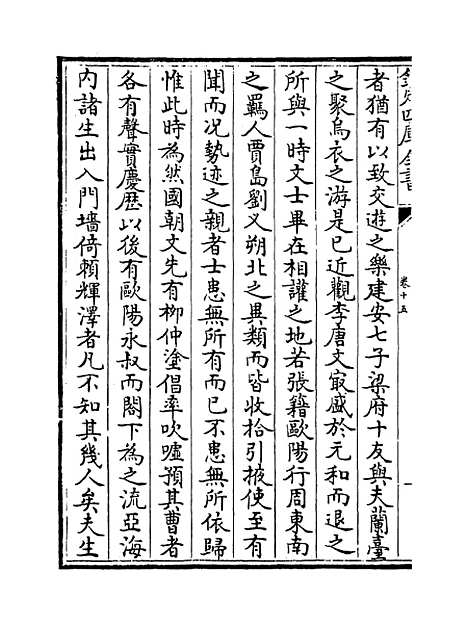 欽定四庫全書
卷十五
者猶有以致交遊之樂建安七子梁府十友與夫蘭臺
之聚烏衣之游是已近觀李唐文㝡盛於元和而退之
所與一時文士畢在相讙之地若張籍歐陽行周東南
之羈人賈島劉乂朔北之異類而皆收拾引掖使至有
聞而况勢迹之親者士患無所有而已不患無所依歸
惟此時為然國朝文先有柳仲塗倡率吹噓預其曹者
各有聲實慶歴以後有歐陽永叔而閣下為之流亞海
内諸生出入門墻倚賴輝澤者凡不知其幾人矣夫生